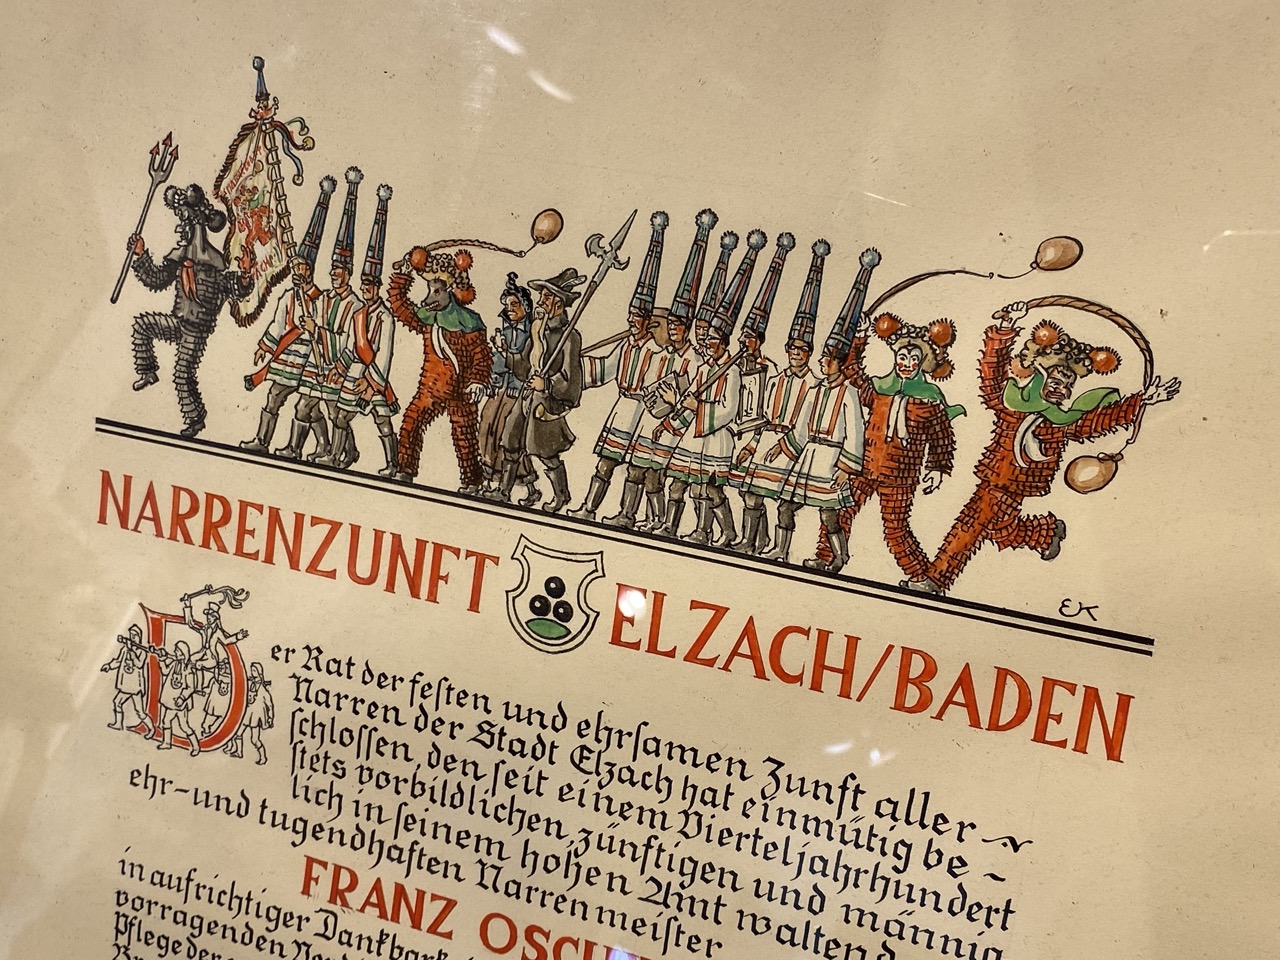 EK
NARRENZUNFT ELZACH/BADEN
Der Rat der festen und ehrsamen Zunft aller
Narren der Stadt Elzach hat einmütig be-
schlossen, den seit einem Vierteljahrhundert
stets vorbildlichen, zünftigen und männig
lich in seinem hohen Amt waltend
ehr-und tugendhaften Narrenmeister
FRANZ
in aufrichtiger
vorragenden
Pflege der